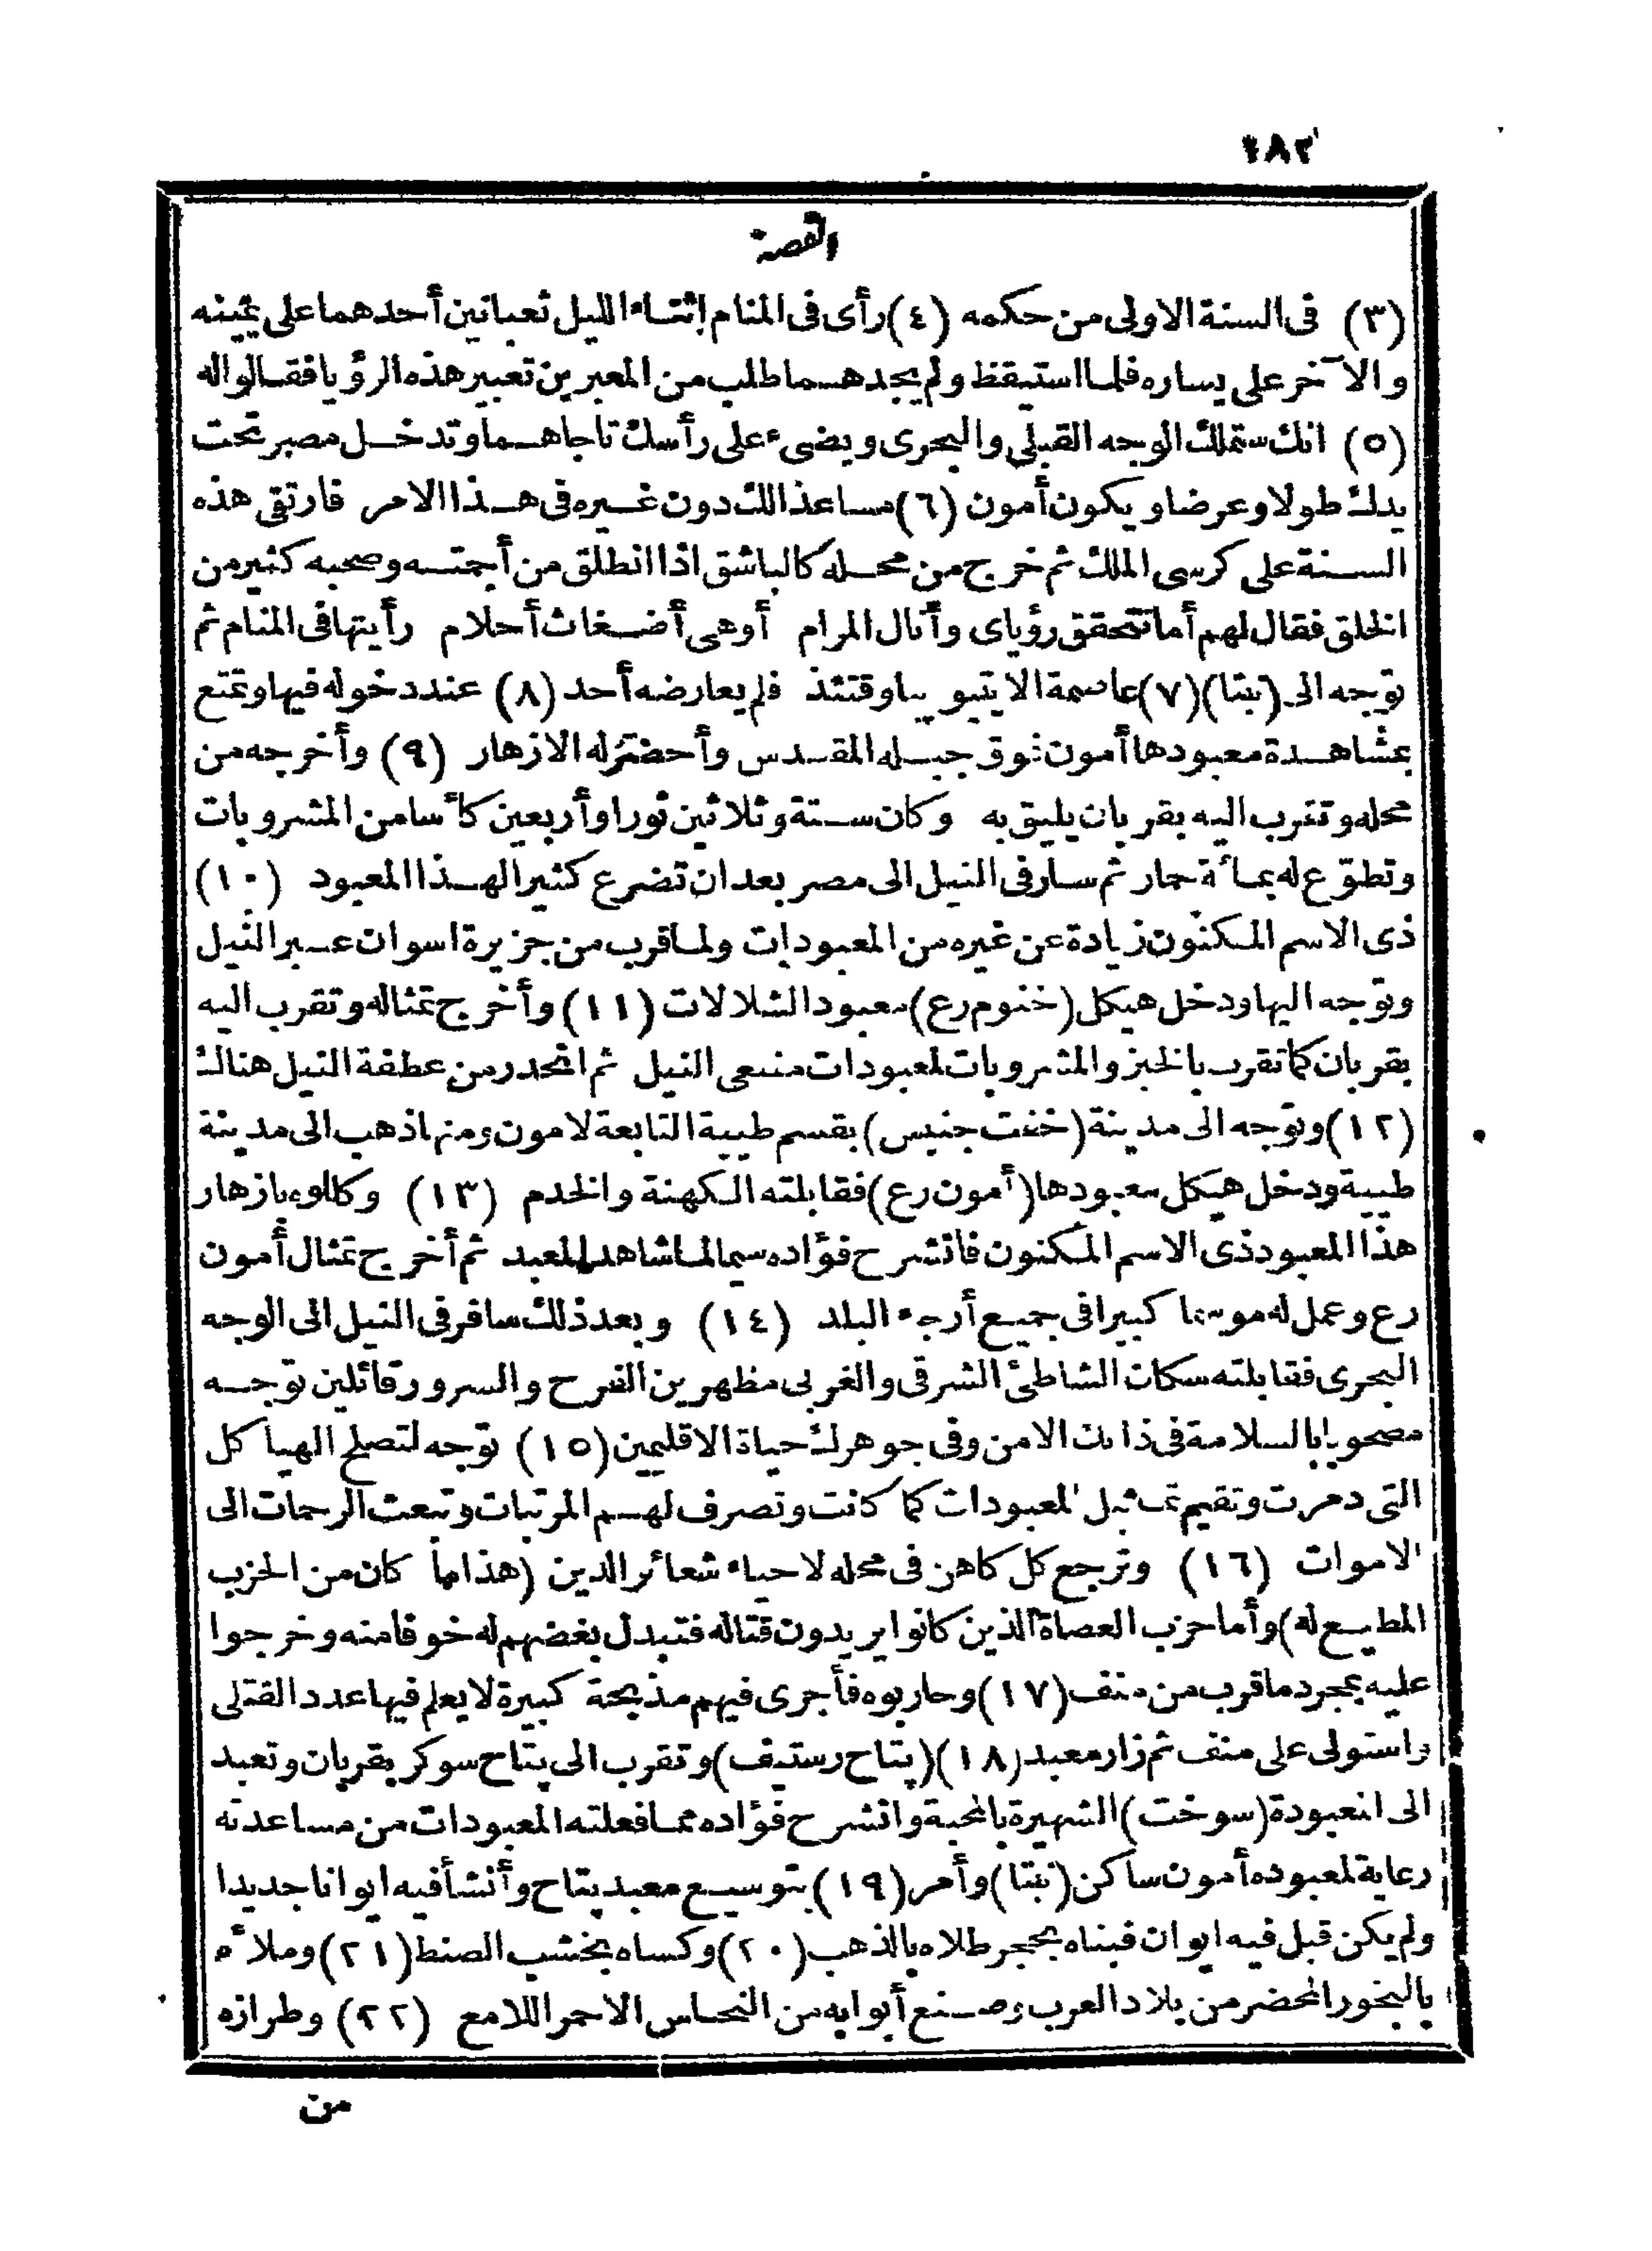 ٢٨٢
القصة
(٣) فى السنة الاولى من حكمه (٤) رأى فى المنام اثناء الليل ثعبانين أحدهما على يمينه
والآخر على يساره فلما استيقظ ولم يجدهما طلب من المعبرين تعبير هذه الرؤيا فقالوا له
(٥) انك ستملك الوجه القبلى والبحرى ويضىء على رأسك تاجاهما وتدخل مصر تحت
يدك طولا وعرضا ويكون أمون (٦) مساعدا لك دون غيره فى هذا الامر فارتقى هذه
السنة على كرسى الملك ثم خرج من محله كالباشق اذا انطلق من أجمته وصحبه كثير من
الخلق فقال لهم أما تتحقق رؤياى وأنال المرام أوهى أضغاث أحلام رأيتها فى المنام ثم
توجه الى (نبتا) (٧) عاصمة الايتيوبيا وقتئذ فلم يعارضه أحد (٨) عند دخوله فيها وتمتع
بمشاهدة معبودها أمون فوق جبله المقدس وأحضر له الازهار (٩) وأخرجه من
محله وتقرب اليه بقربان يليق به وكان ستة وثلاثين ثورا وأربعين كأسا من المشروبات
وتطوع له بمائة حمار ثم سار فى النيل الى مصر بعد ان تضرع كثيرا لهذا المعبود (١٠)
ذى الاسم المكنون زيادة عن غيره من المعبودات ولما قرب من جزيرة اسوان عبر النيل
وتوجه اليها ودخل هيكل (خنوم رع) معبود الشلالات (١١) وأخرج تمثاله وتقرب اليه
بقربان كما تقرب بالخبز والمشروبات لمعبودات منبعى النيل ثم انحدر من عطفة النيل هنالك
(١٢) وتوجه الى مدينة (خفت جنبس) بقسم طيبة التابعة لامون ومنها ذهب الى مدينة
طيبة ودخل هيكل معبودها (أمون رع) فقابلته الكهنة والخدم (١٣) وكللوه بازهار
هذا المعبود ذى الاسم المكنون فانشرح فؤاده سيما لما شاهد المعبد ثم أخرج تمثال أمون
رع وعمل له موسما كبيرا فى جميع أرجاء البلد (١٤) وبعد ذلك سافر فى النيل الى الوجه
البحرى فقابلته سكان الشاطئ الشرقى والغربى مظهرين الفرح والسرور قائلين توجه
مصحوبا بالسلامة فى ذاتك الامن وفى جوهرك حياة الاقليمين (١٥) توجه لتصلح الهياكل
التى دمرت وتقيم تماثيل المعبودات كما كانت وتصرف لهم المرتبات وتبعث الرحمات الى
الاموات (١٦) وترجع كل كاهن فى محله لاحياء شعائر الدين (هذا ما كان من الحزب
المطيع له) وأما حزب العصاة الذين كانوا يريدون قتاله فتبدل بغضهم له خوفا منه وخرجوا
عليه بمجرد ما قرب من منف (١٧) وحاربوه فأجرى فيهم مذبحة كبيرة لا يعلم فيها عدد القتلى
واستولى على منف ثم زار معبد (١٨) (پتاح رستيف) وتقرب الى پتاح سوكر بقربان وتعبد
الى المعبودة (سوخت) الشهيرة بالمحبة وانشرح فؤاده مما فعلته المعبودات من مساعدته
رعاية لمعبوده أمون ساكن (نبتا) وأمر (١٩) بتوسيع معبد پتاح وأنشأ فيه ايوانا جديدا
ولم يكن قبل فيه ايوان فبناه بحجر طلاه بالذهب (٢٠) وكساه بخشب الصنط (٢١) وملأه
بالبخور المحضر من بلاد العرب وصنع أبوابه من النحاس الاحمر اللامع (٢٢) وطرازه
من